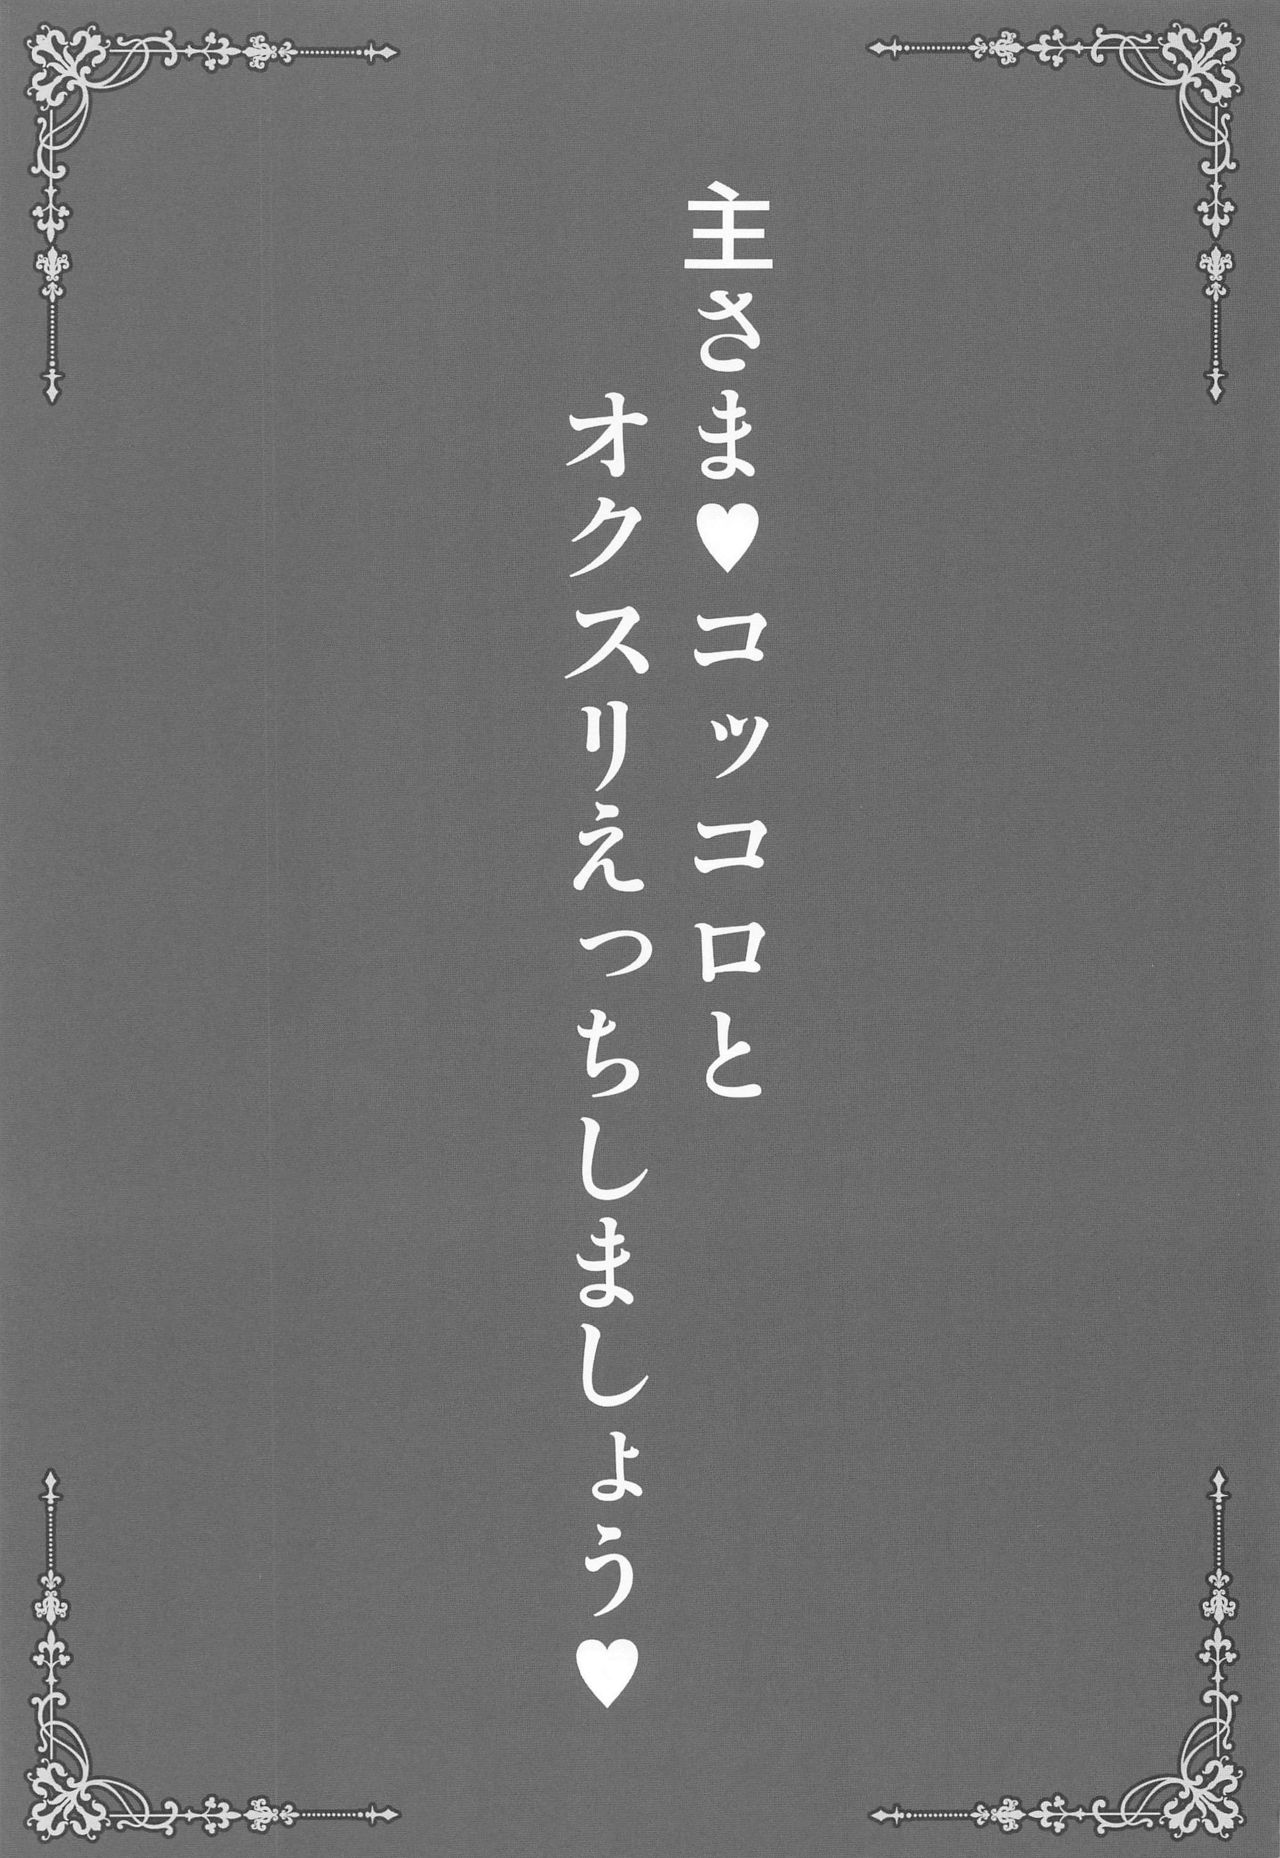 主さま♥コッコロと
オクスリえっちしましょう♥